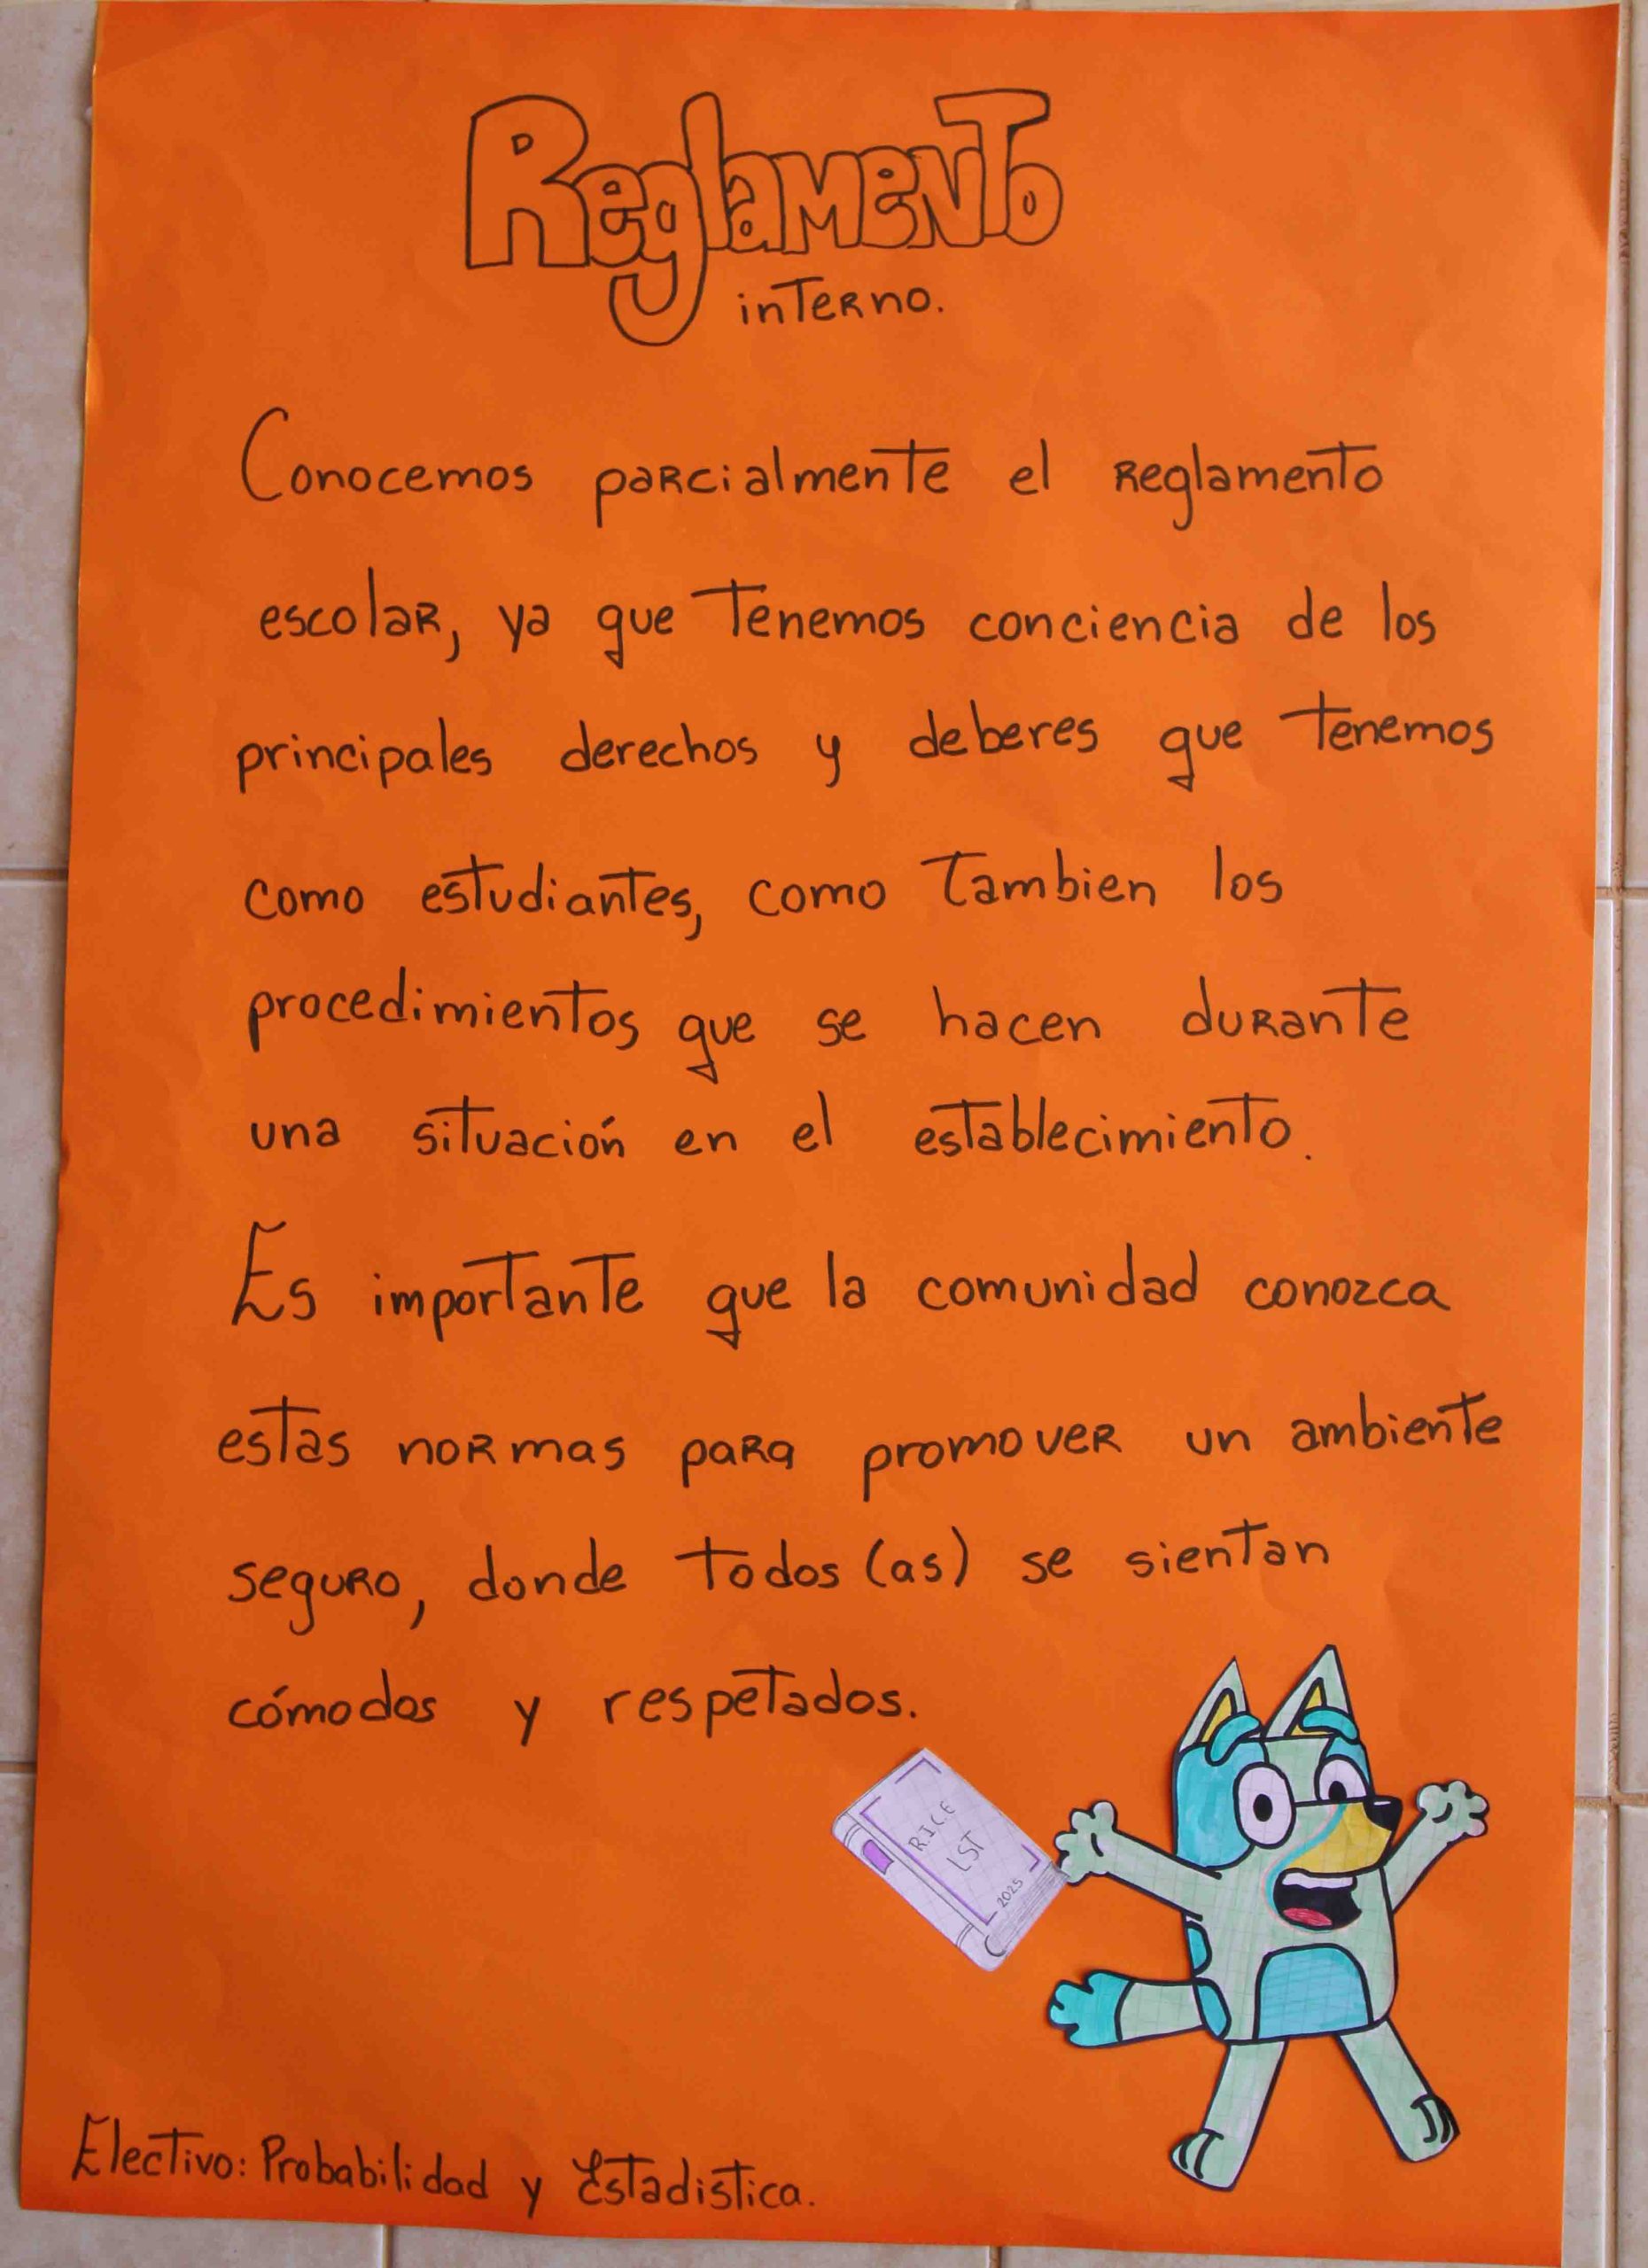 Reglamento
interno.
Conocemos parcialmente el Reglamento
escolar, ya que Tenemos conciencia de los
principales derechos y deberes que Tenemos
como estudiantes, como Tambien los
procedimientos que se hacen durante
una situación en el establecimiento.
Es importante que la comunidad conozca
estas normas para promover un ambiente
seguro, donde Todos (as) se sientan
cómodos y respetados.
R.I.C.E
LST
2025
Electivo: Probabilidad y Estadistica.